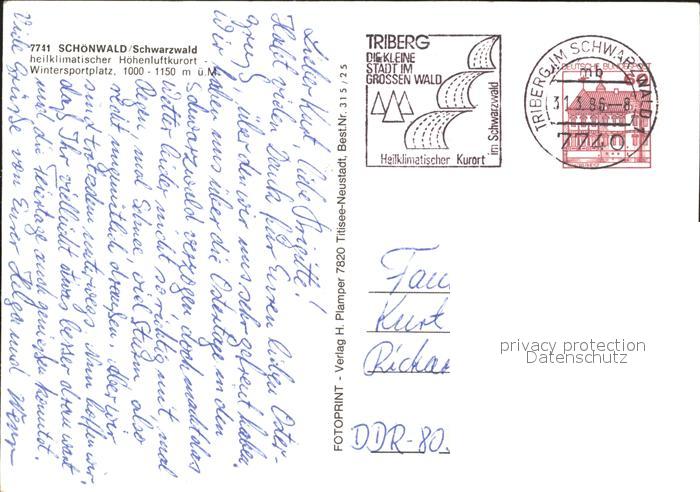 7741 SCHÖNWALD/Schwarzwald
heilklimatischer Höhenluftkurort -
Wintersportplatz, 1000 - 1150 m ü.M.
Lieber Kurt, liebe Brigitte!
Habt vielen Dank für Euren lieben Oster-
gruß, über den wir uns sehr gefreut haben.
Wir haben uns über die Ostertage in den
Schwarzwald verzogen doch macht das
Wetter leider nicht so richtig mit, mal
Regen, mal Schnee, viel Sturm, also
recht ungemütlich draußen. Aber wir
sind trotzdem unterwegs. Nun hoffen wir,
daß Ihr vielleicht etwas besser dran wart
und die Feiertage auch genießen konntet.
Viele Grüße von Eurer Helga und
FOTOPRINT - Verlag H. Plamper 7820 Titisee-Neustadt, Best.Nr. 315/25
TRIBERG
DIE KLEINE
STADT IM
GROSSEN WALD
im Schwarzwald
Heilklimatischer Kurort
TRIBERG IM SCHWARZWALD 1
mb
31.3.86-8
7740
DEUTSCHE BUNDESPOST
60
Fam
Kurt
Rickar
DDR-80.
privacy protection
Datenschutz